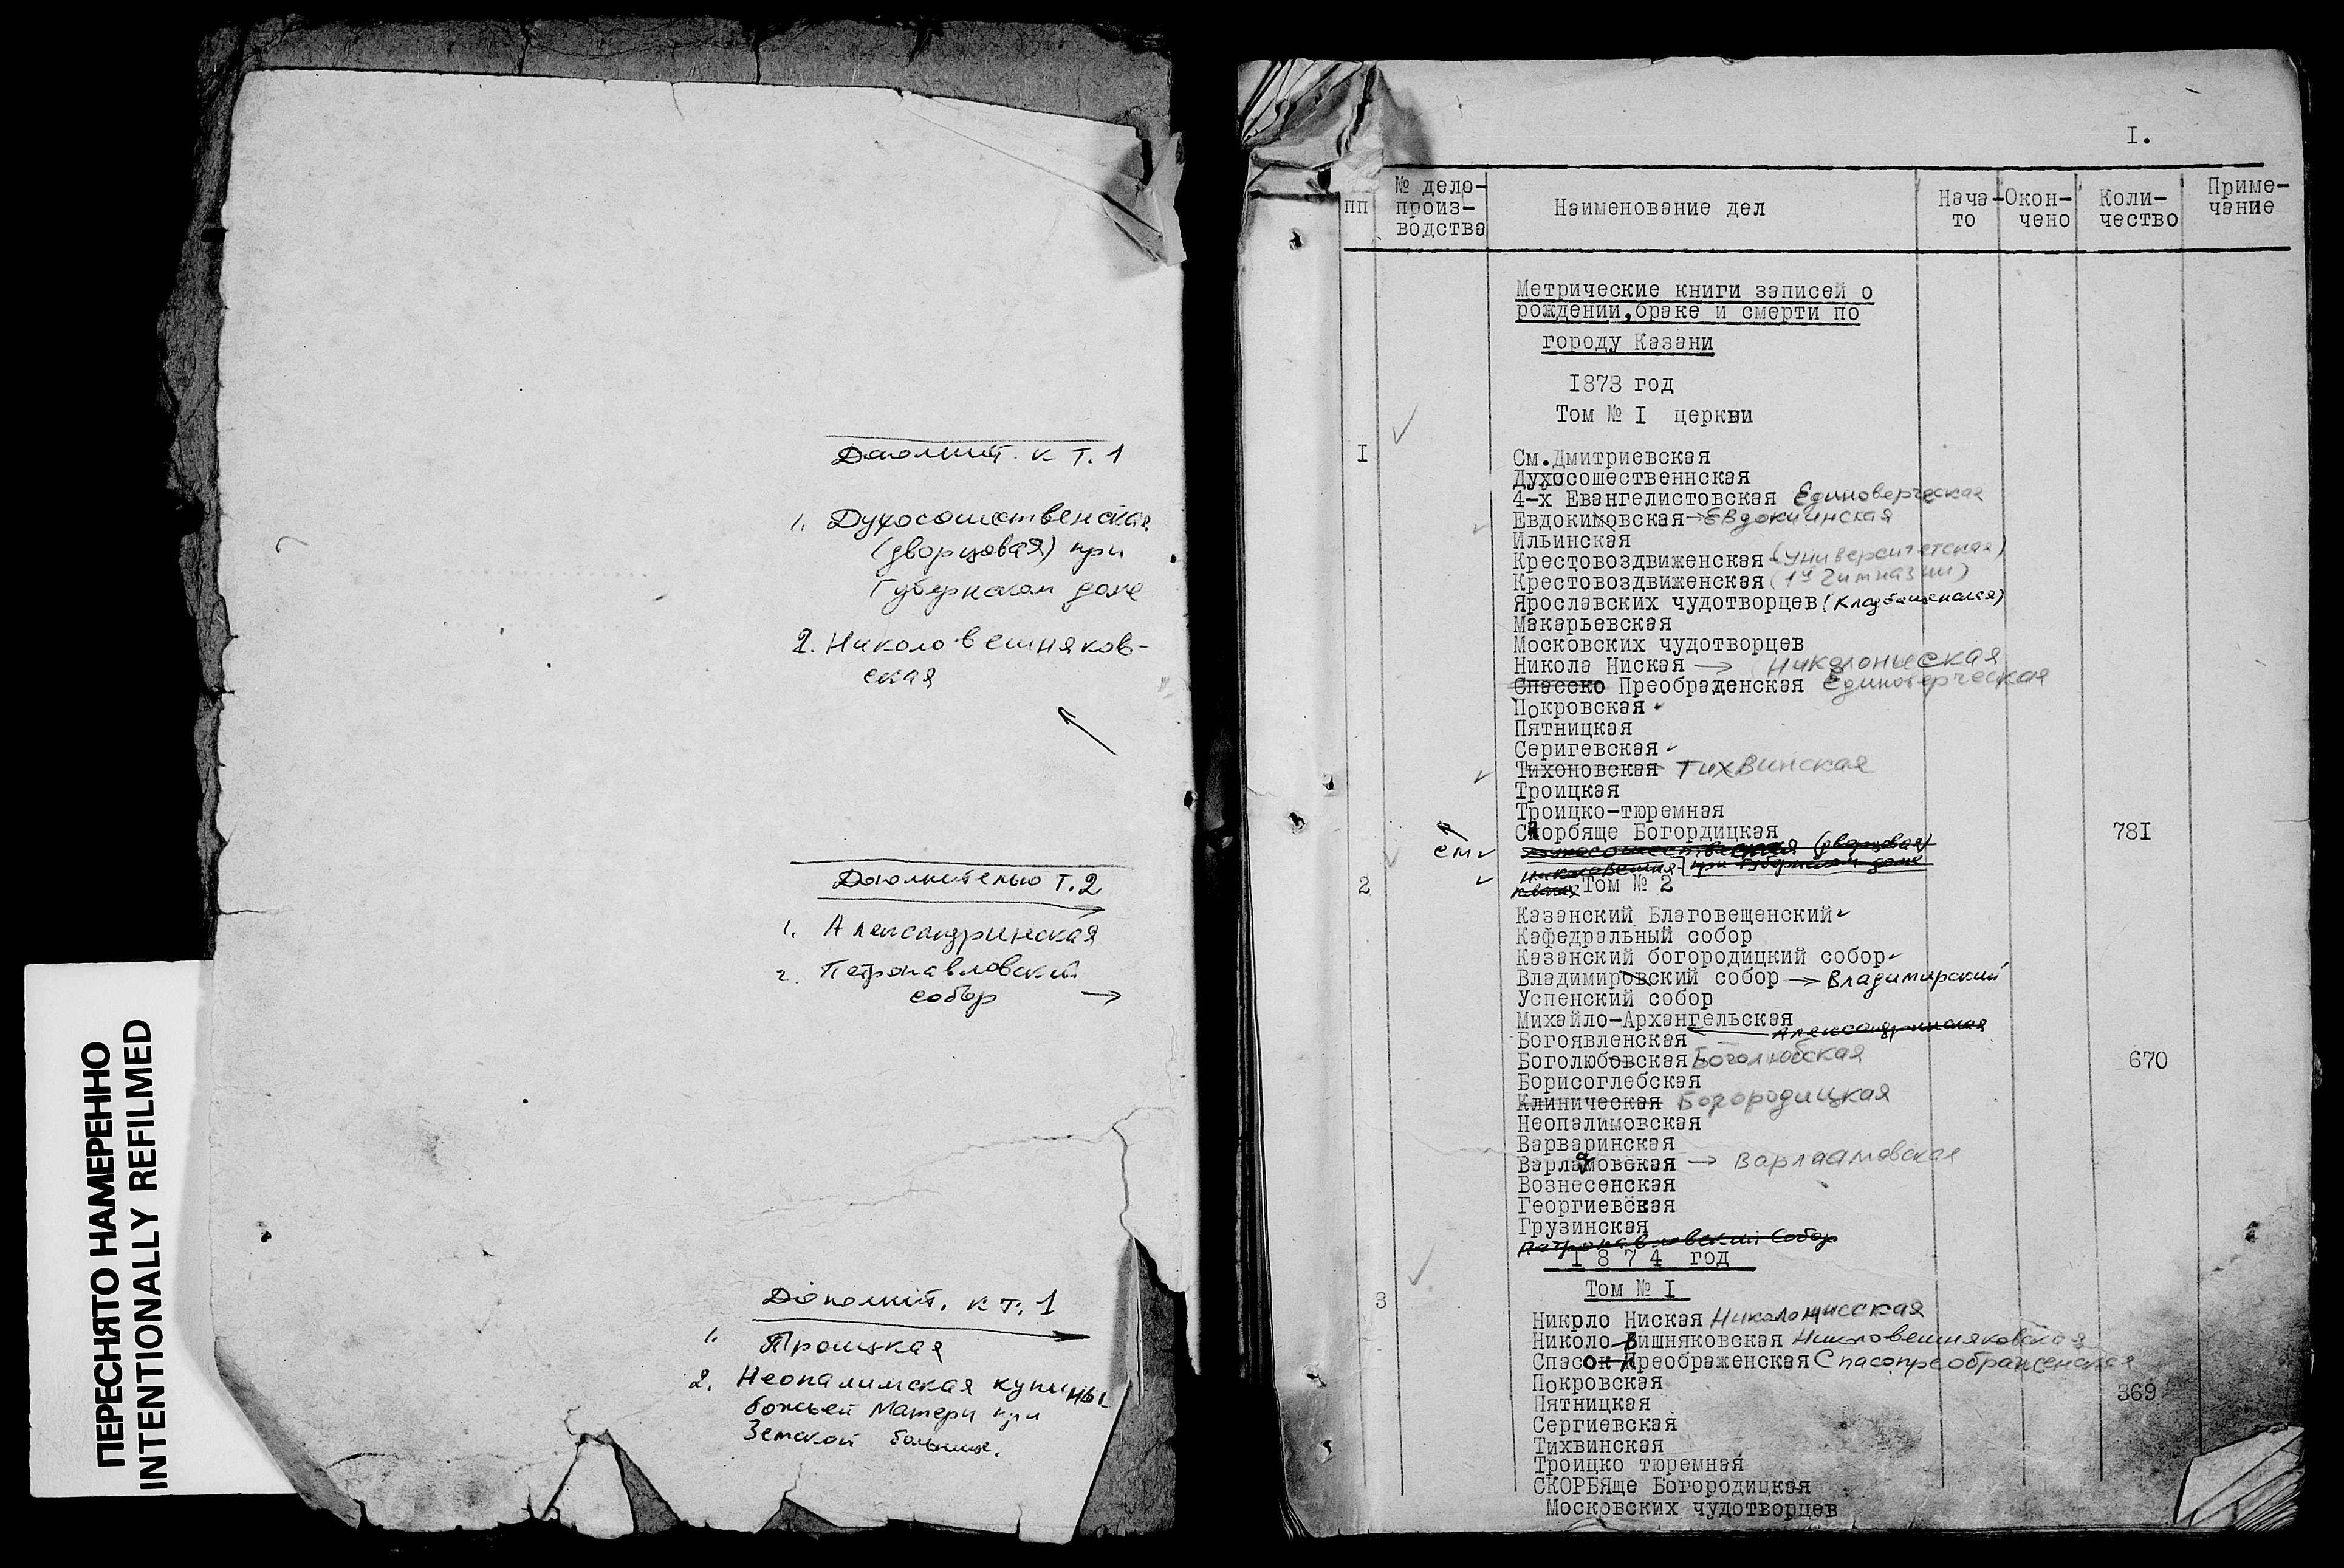 ПЕРЕСНЯТО НАМЕРЕННО
INTENTIONALLY REFILMED
Дополнит. к т. 1
1. Духосошественская
(дворцовая) при
Губернском доме
2. Николовешняков-
ская
Дополнительно т. 2
1. Александринская
2. Петропавловский
собор →
Дополнит. к т. 1
1. Троицкая
2. Неопалимская купины
божьей Матери при
Земской больнице.
I.
пп
№ дело-
произ-
водства
Наименование дел
Нача-
то
Окон-
чено
Коли-
чество
Приме-
чание
Метрические книги записей о
рождении,браке и смерти по
городу Казани
1873 год
Том № I церкви
I
См.Дмитриевская
Духосошественнская
4-х Евангелистовская Единоверческая
Евдокимовская → Евдокиинская
Ильинская
Крестовоздвиженская (университетская)
Крестовоздвиженская (1й гимназии)
Ярославских чудотворцев (кладбищенская)
Макарьевская
Московских чудотворцев
Никола Ниская → Николониская
Спасско Преобраденская Единоверческая
Покровская
Пятницкая
Серигевская
Тихоновская Тихвинская
Троицкая
Троицко-тюремная
Скорбяще Богордицкая 78I
см. Духосошественская (дворцовая)
при Губернском доме
2 Том № 2
Казанский Благовещенский
Кафедральный собор
Казанский богородицкий собор
Владимировский собор → Владимирский
Успенский собор
Михайло-Архангельская
Александринская
Богоявленская
Боголюбовская Боголюбская 670
Борисоглебская
Клиническая Богородицкая
Неопалимовская
Варваринская
Варламовская → Варлаамовская
Вознесенская
Георгиевская
Грузинская
Петропавловский Собор
1 8 7 4 год
Том № I
3
Никрло Ниская Николониская
Николо Вишняковская Николовешняковская
Спасок Преображенская Спасопреображенская
Покровская 369
Пятницкая
Сергиевская
Тихвинская
Троицко тюремная
СКОРБЯще Богородицкая
Московских чудотворцев